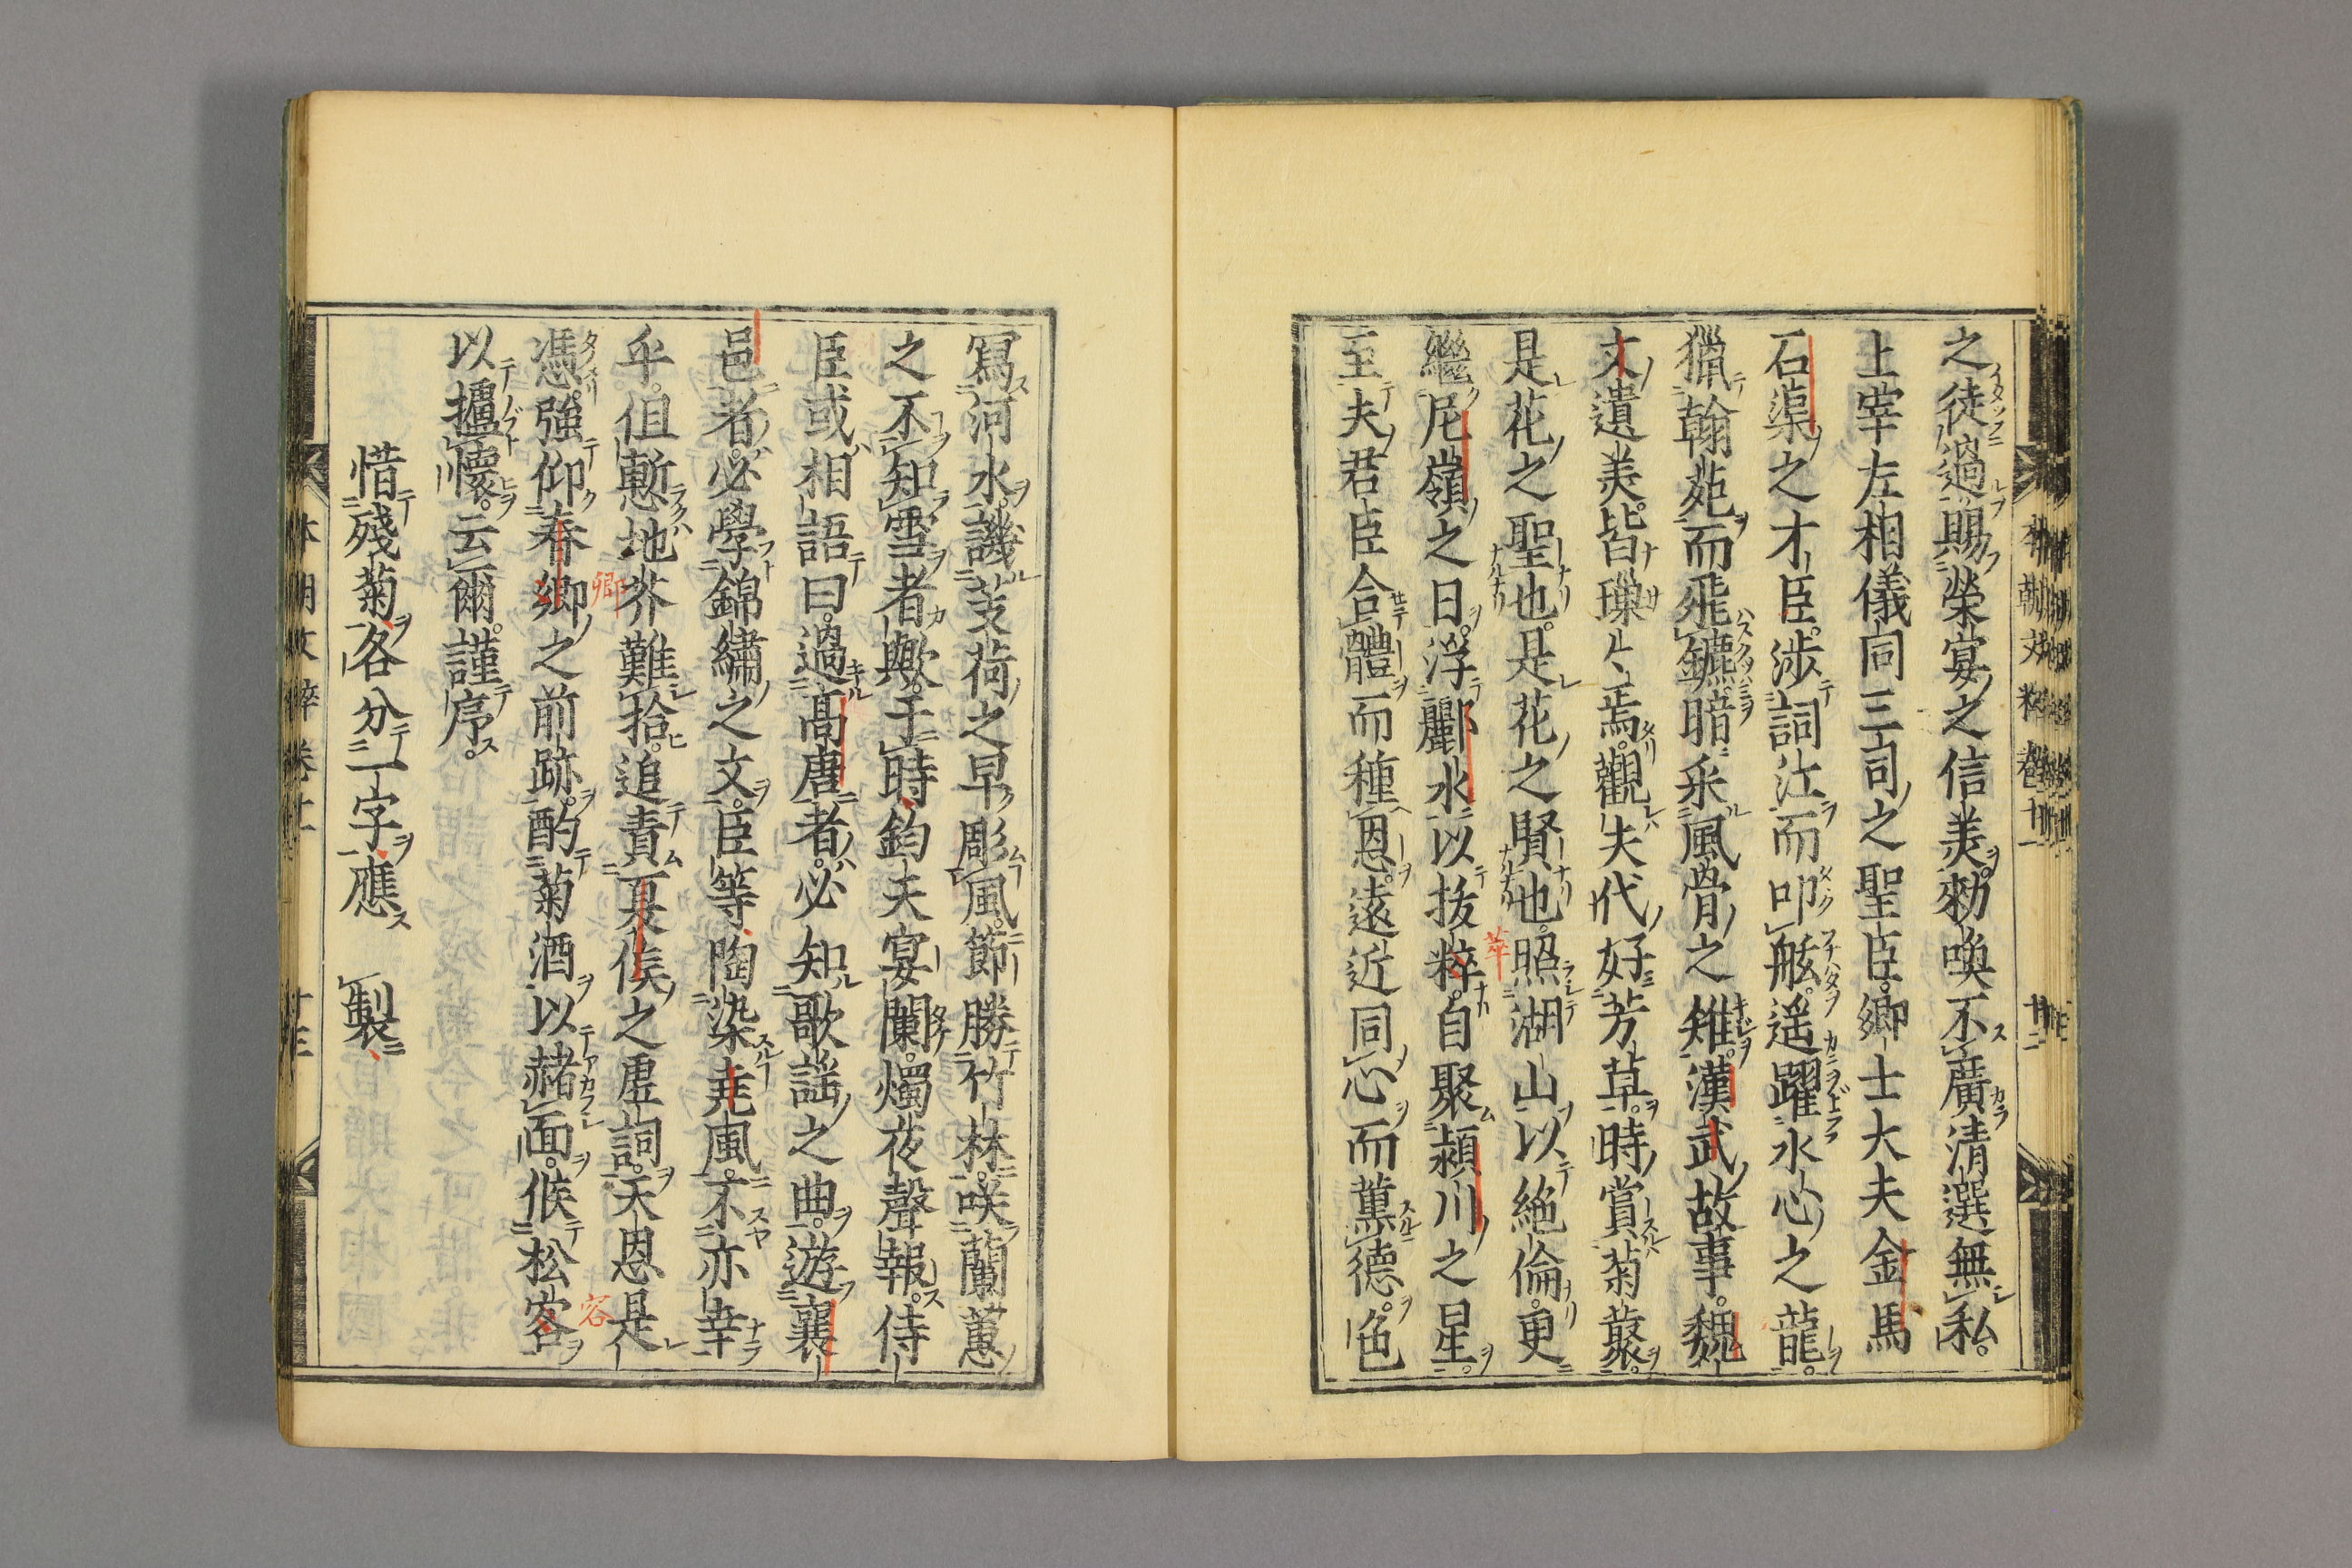 之徒過賜榮宴之信美勑喚不廣清選無私
上宰左相儀同三司之聖臣卿士大夫金馬
石渠之才臣渉詞江而叩舷遥躍水心之龍
獵翰菀而飛鑣暗釆風骨之雉漢武故事魏
文遺美皆璅〻焉觀夫代好芳草時賞菊藂
是花之聖也是花之賢也照湖山以絶倫更
繼尼嶺之日浮酈水以抜粹自聚潁川之星
至夫君臣合體而種恩遠近同心而薫德色
萃
本朝文粹卷十一 廿二
寫河水譏芰荷之早彫風節勝竹林咲蘭蕙
之不知雪者歟于時鈞夫宴闌燭夜聲報侍
臣或相語曰過髙唐者必知歌謡之曲遊襄
邑者必學錦繡之文臣等陶染尭風不亦幸
乎但慙地芥難拾追責夏侯之虚詞天恩是
憑強仰春卿之前跡酌菊酒以赭面候松容
以攄懷云爾謹序
惜殘菊各分一字應 製
卿
容